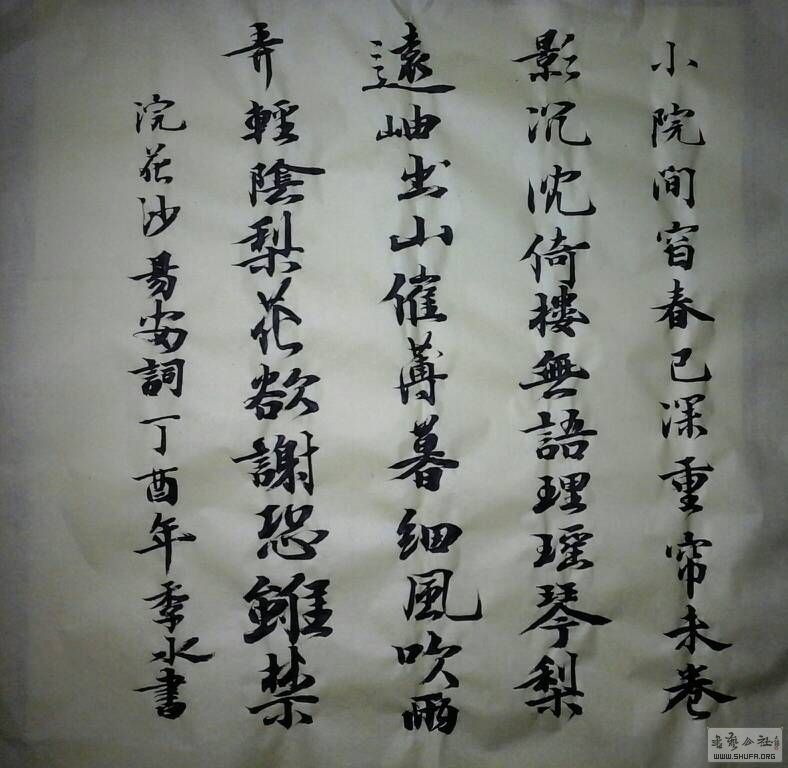 小院间窗春已深重帘未卷
影沉沈倚樓無語理瑶琴梨
遠岫出山催薄暮細風吹雨
弄輕陰梨花欲謝恐難禁
浣花沙易安詞丁酉年季水書
書藝公社
WWW.SHUFA.ORG